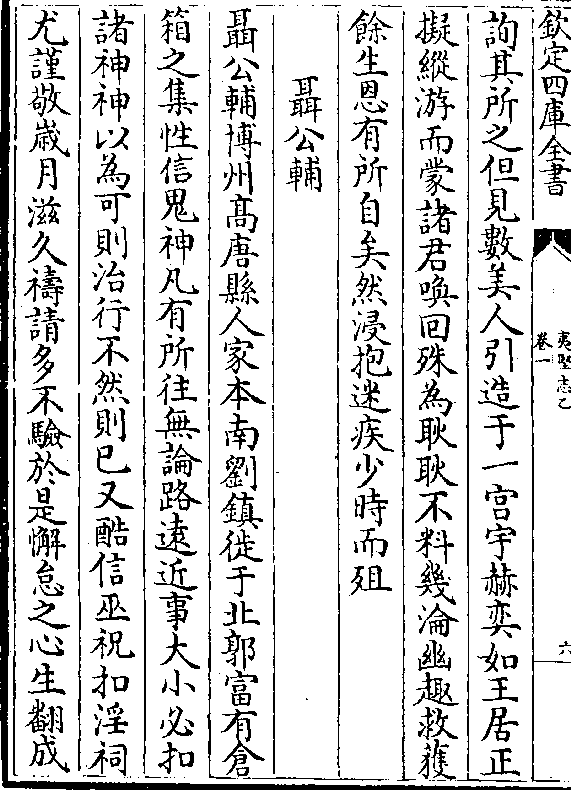 欽定四庫全書
夷堅志乙
卷一
六
詢其所之但見數美人引造于一宫宇赫奕如王居正
擬縱游而蒙諸君喚回殊為耿耿不料幾淪幽趣救䕶
餘生恩有所自矣然浸抱迷疾少時而殂
聶公輔
聶公輔博州髙唐縣人家本南劉鎮徙于北郭富有倉
箱之集性信鬼神凡有所往無論路逺近事大小必扣
諸神神以為可則治行不然則已又酷信巫祝扣淫祠
尤謹敬歲月滋久禱請多不驗於是懈怠之心生翻成